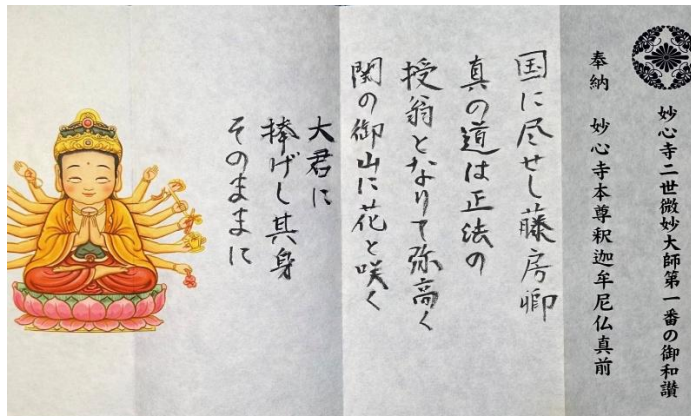 妙心寺二世微妙大師第一番の御和讃
奉納　妙心寺本尊釈迦牟尼仏真前
国に尽せし藤房卿
真の道は正法の
授翁となりて弥高く
関の御山に花と咲く
大君に
捧げし其身
そのままに